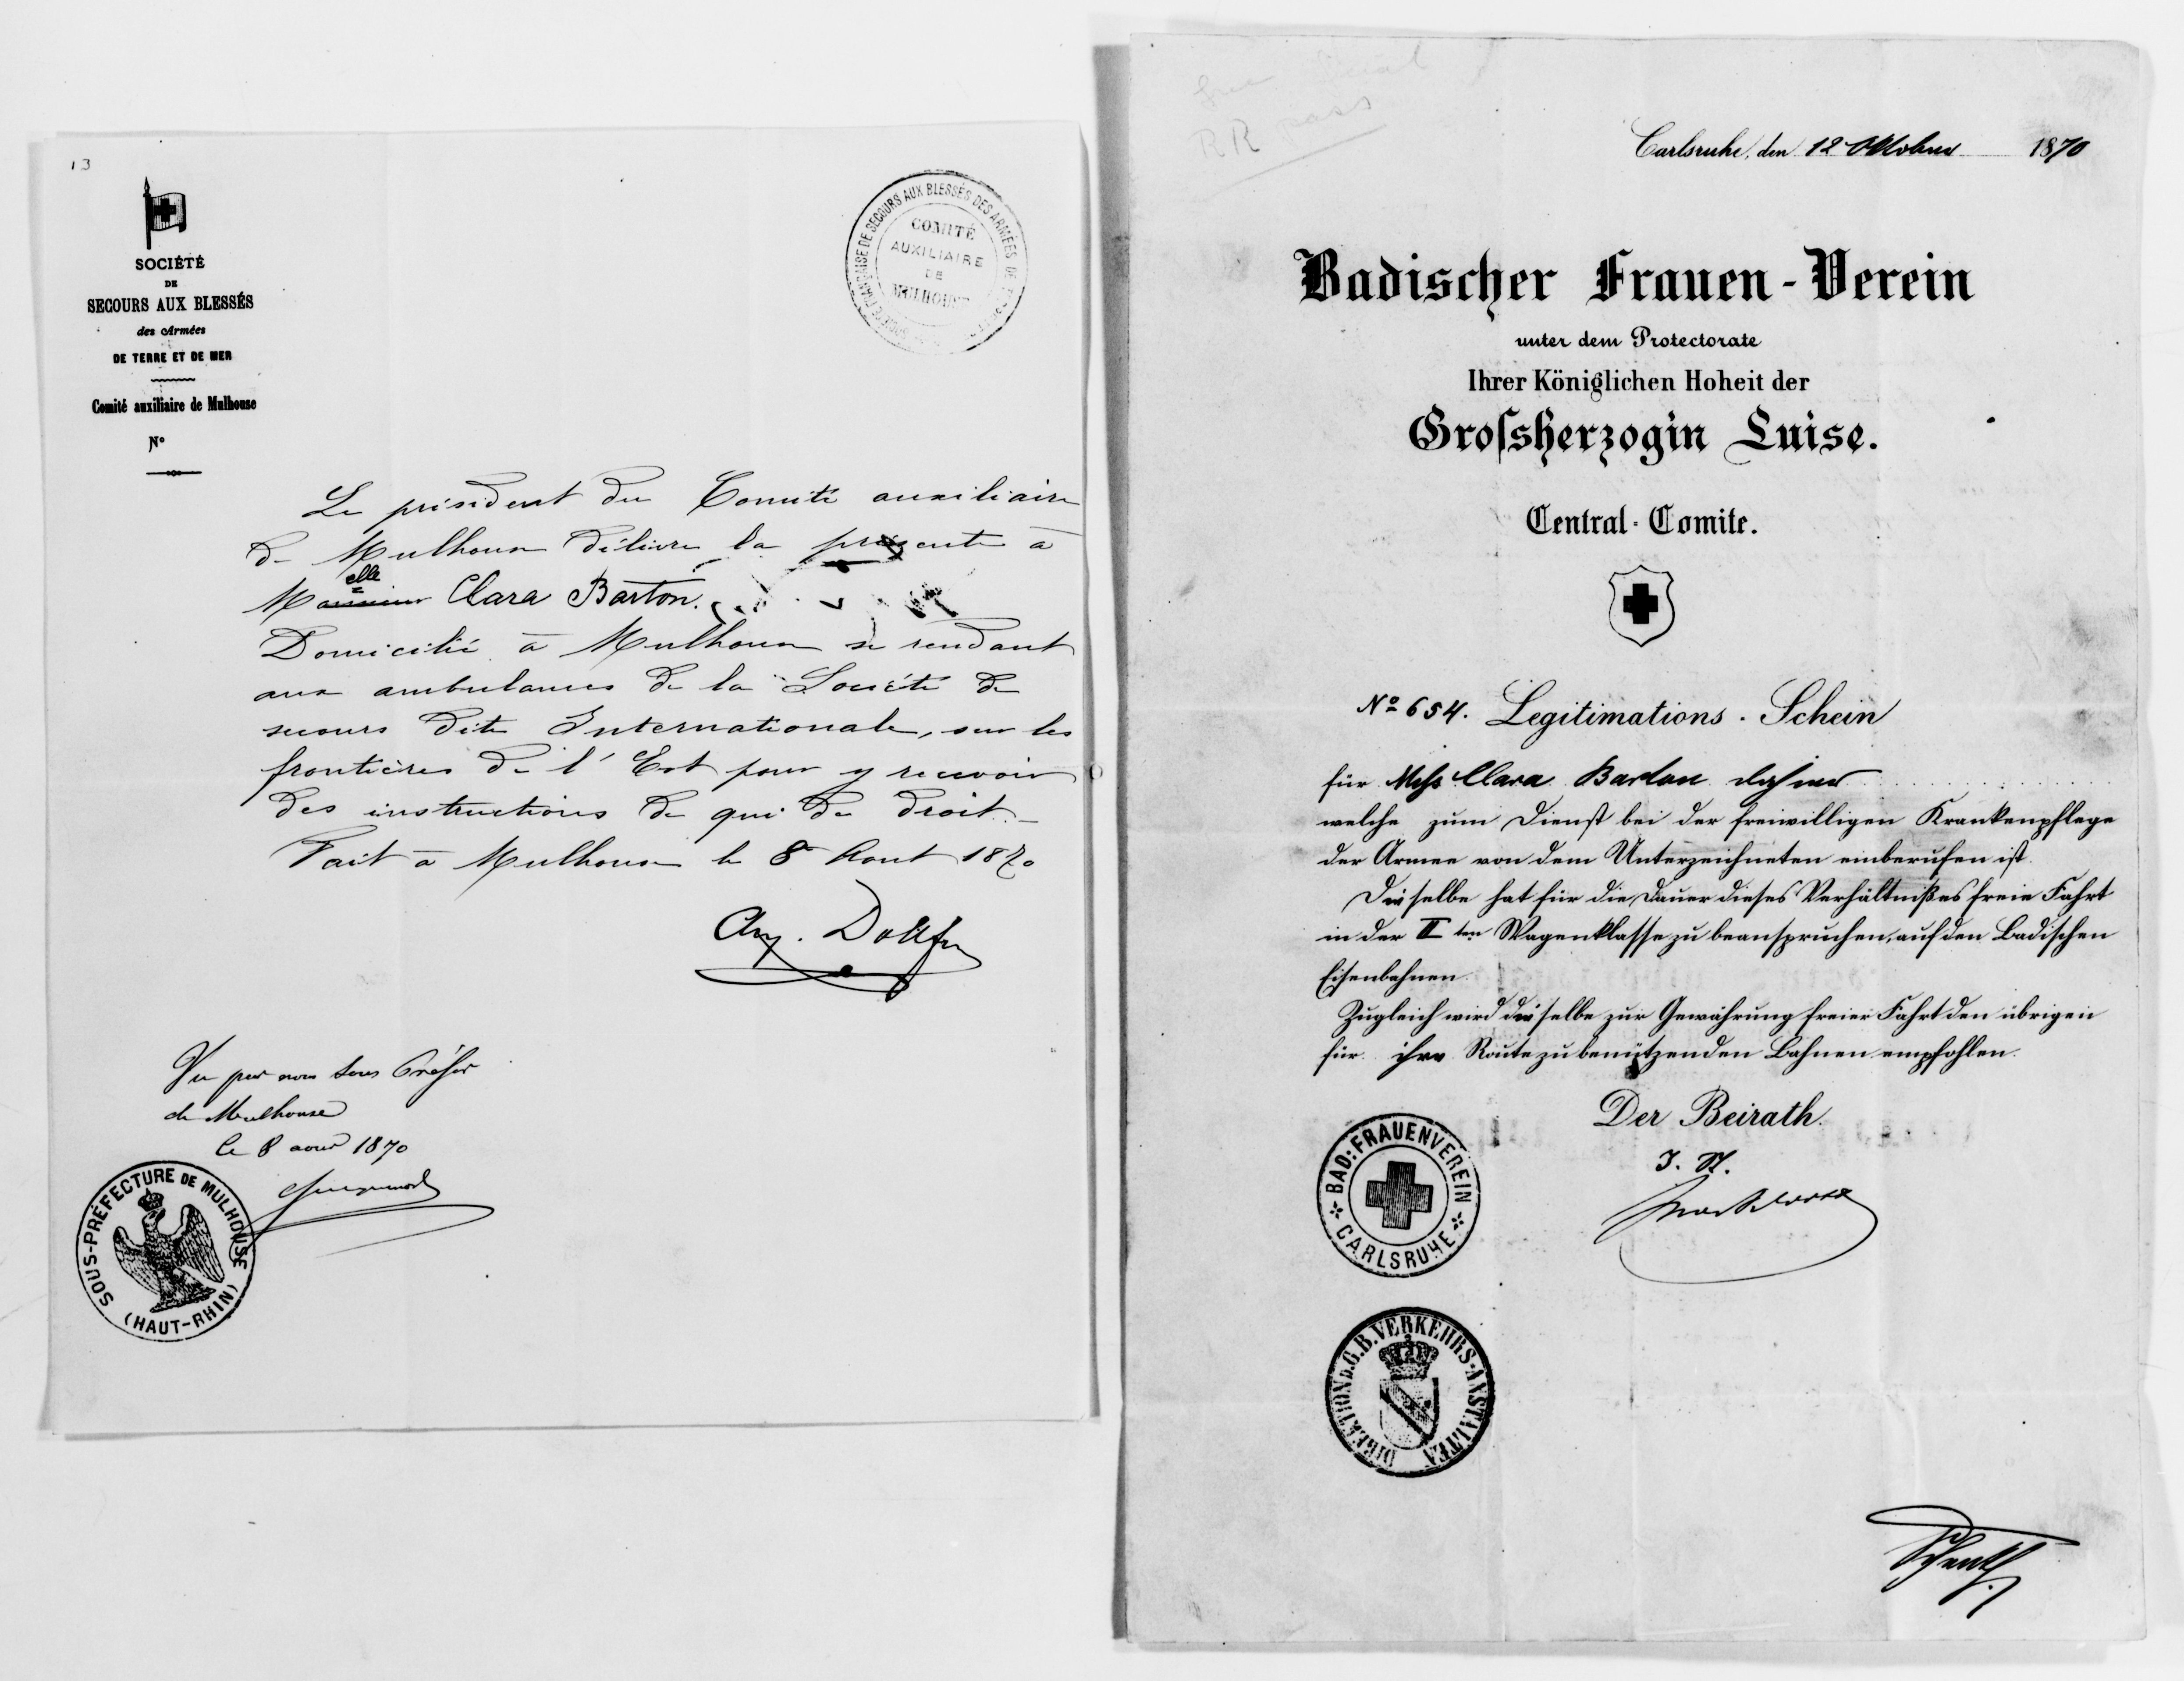 13
SOCIÉTÉ
DE
SECOURS AUX BLESSÉS
des Armées
DE TERRE ET DE MER
Comité auxiliaire de Mulhouse
N°
SOCIÉTÉ FRANÇAISE DE SECOURS AUX BLESSÉS DES ARMÉES DE
COMITÉ
AUXILIAIRE
DE
MULHOUSE
Le président du Comité auxiliaire
de Mulhouse délivre la présente à
elle
Monsieur Clara Barton.
Domicilié à Mulhouse se rendant
aux ambulances de la Société de
secours dite Internationale, sur les
frontières de l'Est pour y recevoir
des instructions de qui de droit.
Fait à Mulhouse le 8 Aout 1870
Aug. Dollfus
Vu par nous Sous Préfet
de Mulhouse
le 8 aout 1870
SOUS-PRÉFECTURE DE MULHOUSE
(HAUT-RHIN)
free
RR pass
Carlsruhe, den 12 Oktober 1870
Badischer Frauen-Verein
unter dem Protectorate
Ihrer Königlichen Hoheit der
Grossherzogin Luise.
Central-Comite.
No 654. Legitimations-Schein
für Miss Clara Barton
welche zum Dienst bei der freiwilligen Krankenpflege
der Armee von dem Unterzeichneten einberufen ist.
Dieselbe hat für die Dauer dieses Verhältnißes freie Fahrt
in der II ten Wagenklasse zu beanspruchen, auf den Badischen
Eisenbahnen.
Zugleich wird dieselbe zur Gewährung freier Fahrt den übrigen
für ihre Route zu benützenden Bahnen empfohlen.
Der Beirath.
BAD: FRAUENVEREIN
CARLSRUHE
DIREKTION D. G. B. VERKEHRS-ANSTALTEN